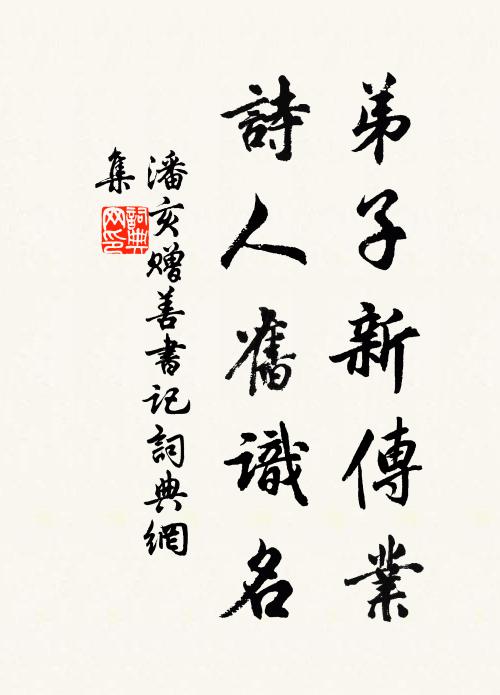 弟子新傳業
詩人舊識名
潘亥贈善書記詞典網
集
詞典
网印